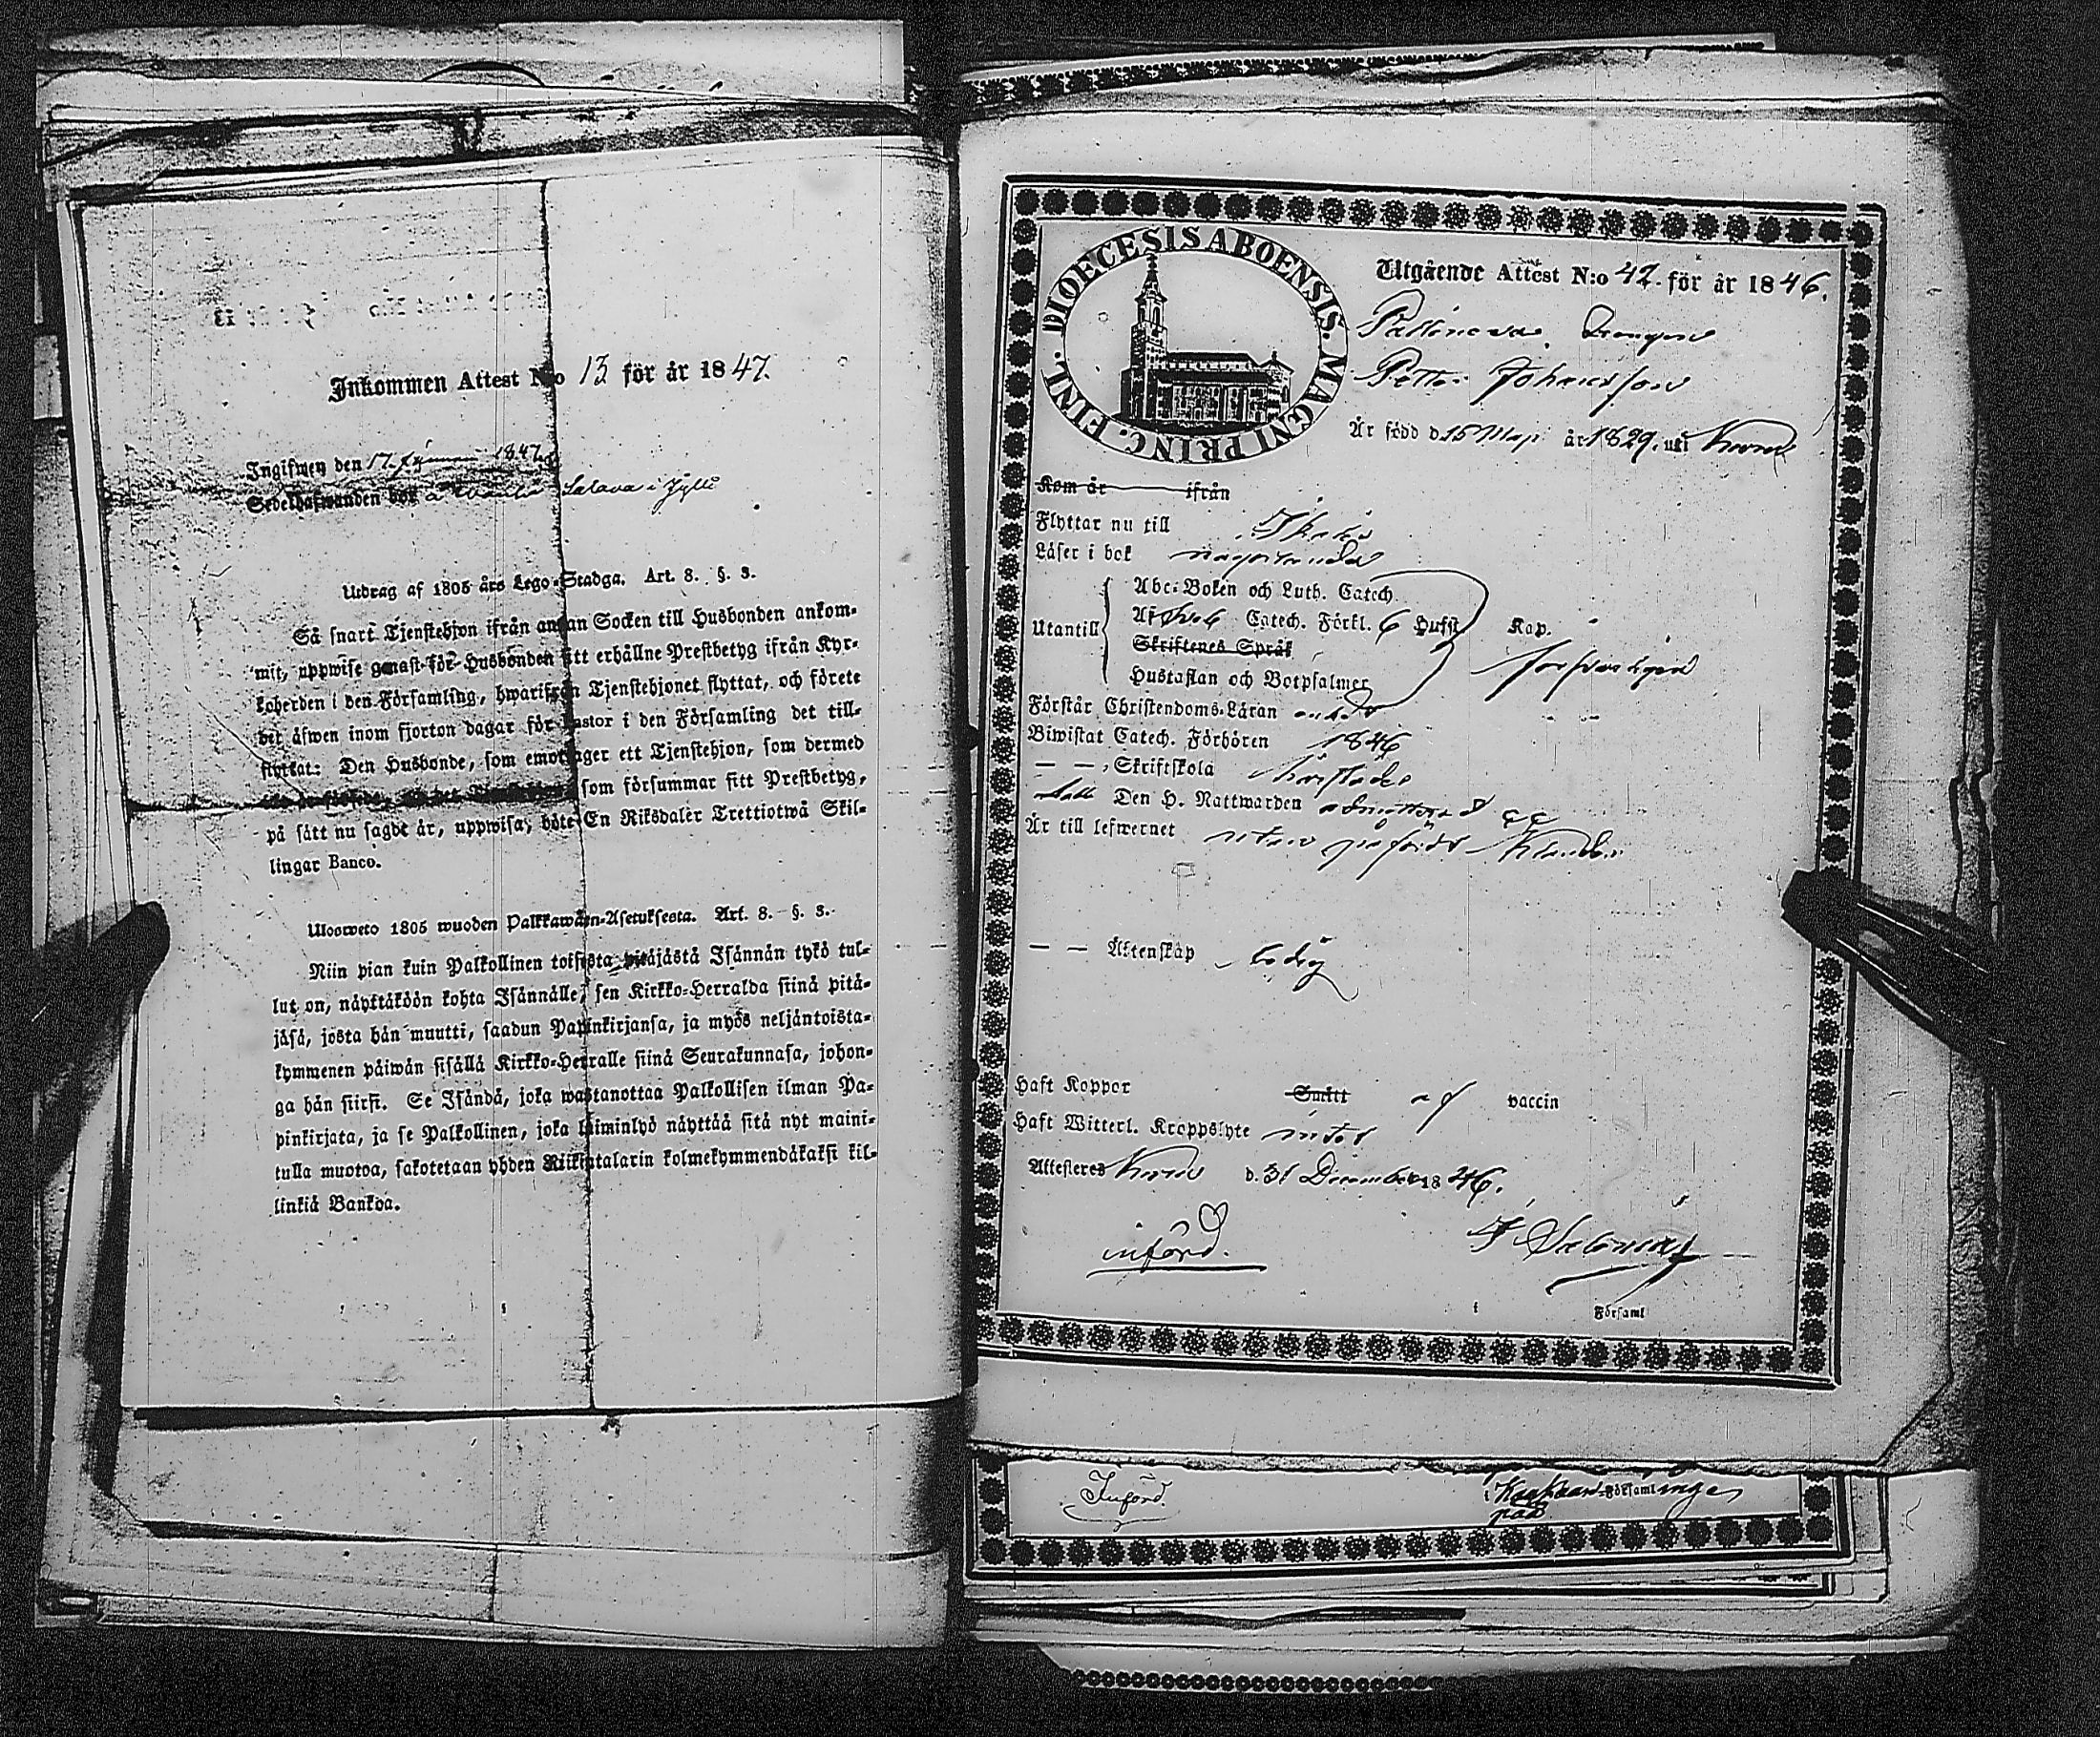 Inkommen Attest N:o 13 för år 1847.
Ingifwen den 17. 1847.
Sedelhafwanden bor å Lalava i Jylli
Utdrag af 1805 års Lego-Stadga. Art. 8. §. 3.
Så snart Tjenstehjon ifrån annan Socken till Husbonden ankom-
mit, uppwise genast för Husbonden sitt erhållne Prestbetyg ifrån Kyr-
koherden i den Församling, hwarifrån Tjenstehjonet flyttat, och förete
det äfwen inom fjorton dagar för Pastor i den Församling det till-
flyttat: Den Husbonde, som emottager ett Tjenstehjon, som dermed
som försummar sitt Prestbetyg,
på sätt nu sagdt är, uppwisa, böte En Riksdaler Trettiotwå Skil-
lingar Banco.
Uloosweto 1805 wuoden Palkkawäen-Asetuksesta. Art. 8. §. 3.
Niin pian kuin Palkollinen toisesta pitäjästä Isännän tykö tul-
lut on, näyttäköön kohta Isännälle, sen Kirkko-Herralda siinä pitä-
jäsä, josta hän muutti, saadun Papinkirjansa, ja myös neljäntoista-
kymmenen päiwän sisällä Kirkko-Herralle siinä Seurakunnasa, johon-
ga hän siirsi. Se Isändä, joka wastanottaa Palkollisen ilman Pa-
pinkirjata, ja se Palkollinen, joka laiminlyö näyttää sitä nyt maini-
tulla muotoa, sakotetaan yhden Riikintalarin kolmekymmendäkaksi kil-
linkiä Bankoa.
DIOECESIS ABOENSIS. MAGNI PRINC. FINL.
Utgående Attest N:o 42. för år 1846.
Drengen
Petter Johansson
Är född d 15 Maji år 1829. uti
Kom år ifrån
Flyttar nu till
Läser i bok
Utantill
Abc-Boken och Luth. Catech.
Catech. Förkl. 6 Hufst. Kap.
Skriftenes Språk
försvarligen
Hustaflan och Botpsalmer
Förstår Christendoms-Läran
Biwistat Catech. Förhören 1846
— — Skriftskola
Den H. Nattwarden
Är till lefwernet utan
— — Äktenskap ledig
Haft Koppor Smitt af vaccin
Haft Witterl. Kroppslyte intet
Attesteres d. 31 December 1846.
införd.
i Församl
Införd.
i Församlingen